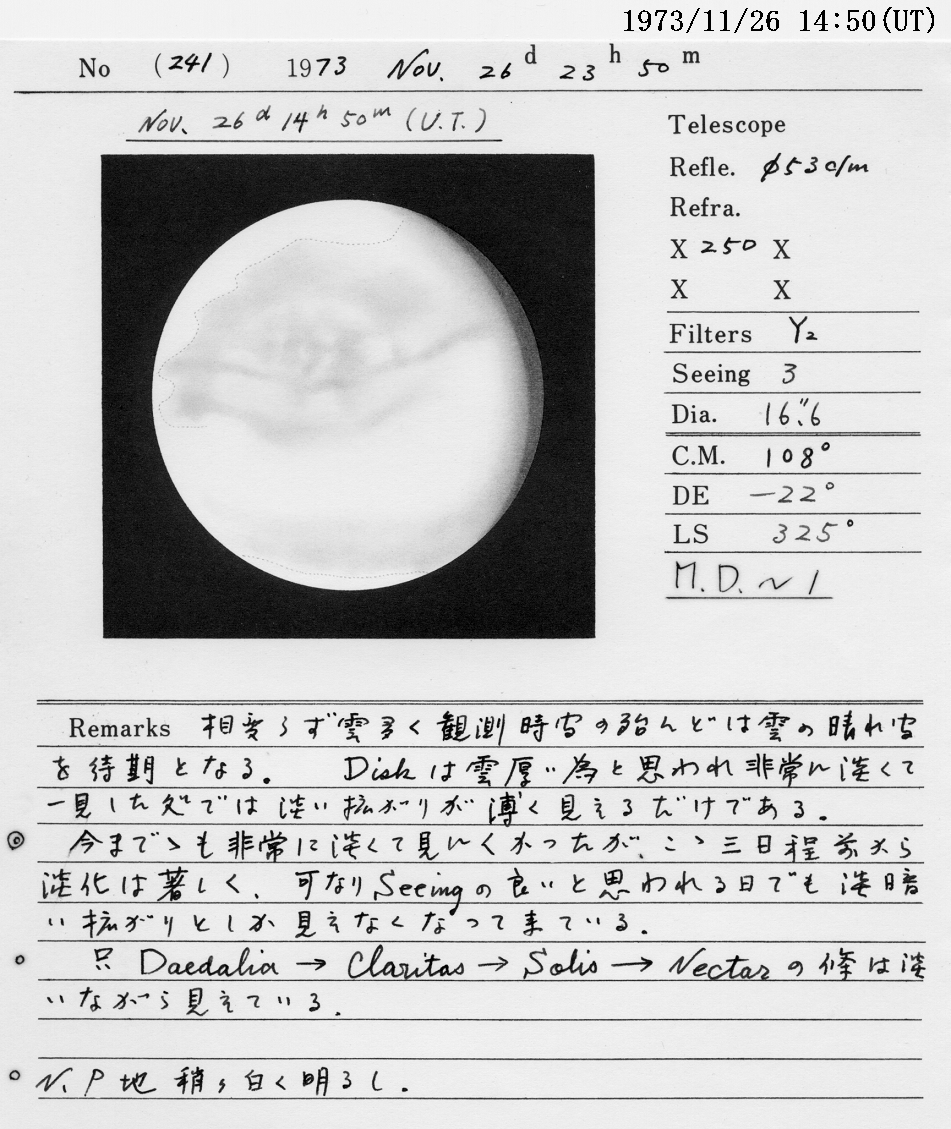 1973/11/26 14:50(UT)
No (241) 1973 Nov. 26 d 23 h 50 m
Nov. 26 d 14 h 50 m (U.T.)
Telescope
Refle. φ53 c/m
Refra.
X 250 X
X X
Filters Y2
Seeing 3
Dia. 16."6
C.M. 108°
DE −22°
LS 325°
M.D. ~ 1
Remarks 相変らず雲多く観測時間の殆んどは雲の晴れ間
を待期となる。 Diskは雲厚い為と思われ非常に淡くて
一見した処では淡い拡がりが薄く見えるだけである。
◎ 今までゝも非常に淡くて見にくかったが、こゝ三日程前から
淡化は著しく、可なりSeeingの良いと思われる日でも淡暗
い拡がりとしか見えなくなって来ている。
○ 只 Daedalia → Claritas → Solis → Nectarの條は淡
いながら見えている.
○ N.P地 稍々白く明るし.